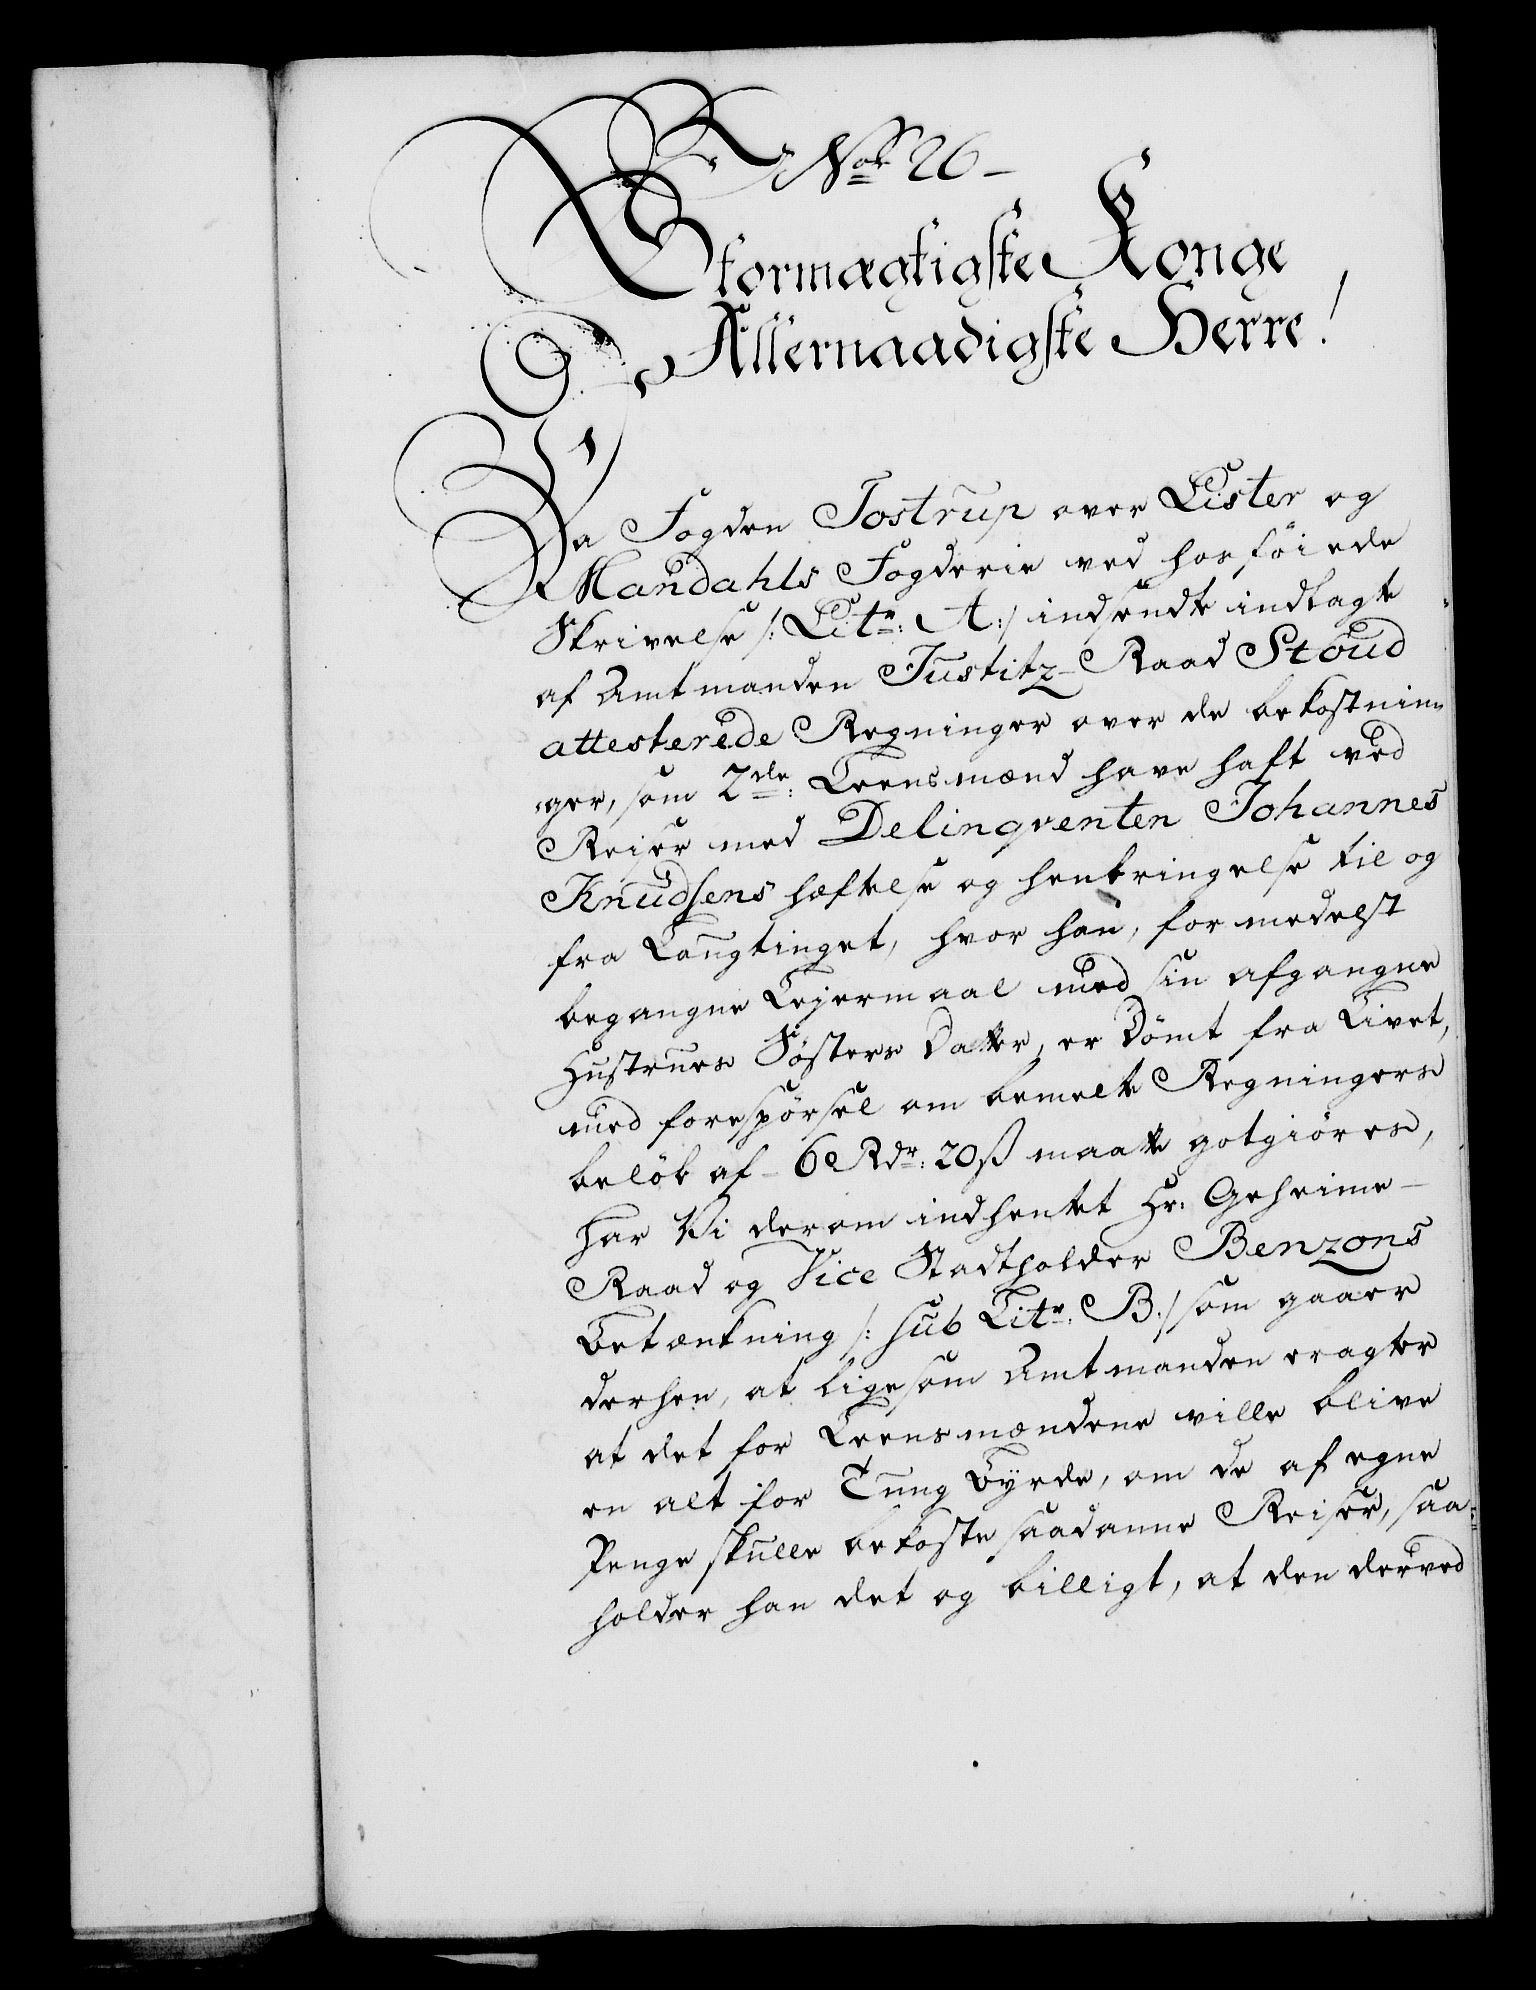 No 26-
Stormægtigste Konge
Allernaadigste Herre!
Da Fogden Tostrup over Lister og
Mandahls Fogderie ved hosföiede
Skrivelse /: Litr: A:/ indsendte indlagte
af Amtmanden Justitz-Raad Stoud
attesterede Regninger over de bekostnin-
ger, som 2de: Leensmænd have haft ved
Reiser med Delinqventen Johannes
Knudsens hæftelse og henbringelse til og
fra Laugtinget, hvor han, formedelst
begangne Lejermaal med sin afgangne
Hustrues Søsters Datter, er Dömt fra Livet,
med forespörsel om bemelte Regningers
belöb af - 6 Rdr: 20 ß maatte gotgiöres,
har Vi derom indhentet Hr: Geheime-
Raad og Vice Stadtholder Benzons
Betænkning /: sub Litr: B:/ som gaaer
derhen, at ligesom Amtmanden eragter
at det for Leensmændene ville blive
en alt for Tung Byrde, om de af egne
Penge skulle bekoste saadanne Reiser, saa
holder han det og billigt, at den derved